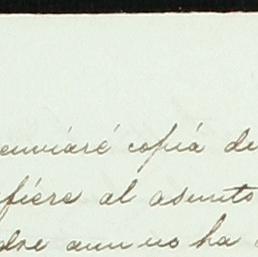 enviaré copia de
fiere al asunto
dre aun no ha